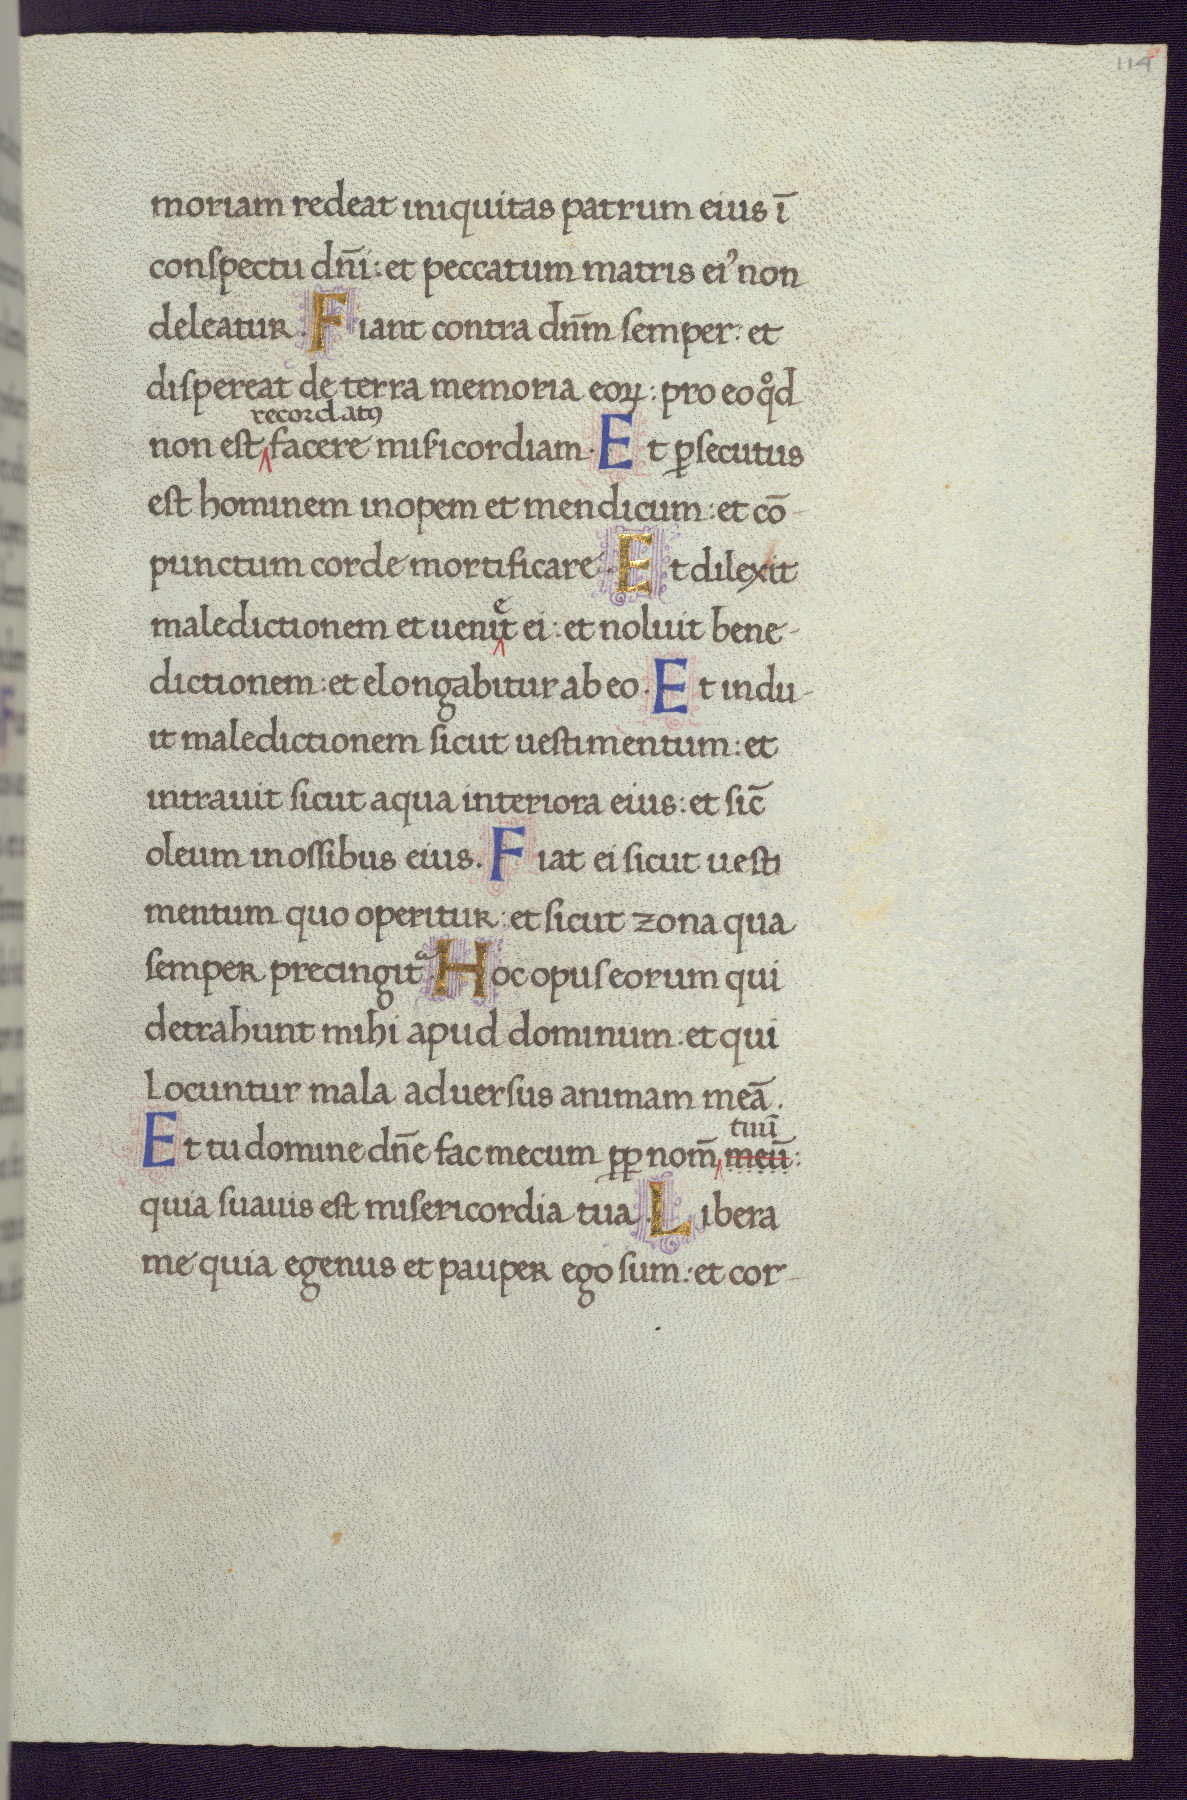 114
moriam redeat iniquitas patrum eius ī
conspectu dn̄i: et peccatum matris ei᾿ non
deleatur. Fiant contra dn̄m semper: et
dispereat de terra memoria eoꝝ: pro eo qͦd
recordatꝰ
non est facere mis̄icordiam. Et ꝑsecutus
est hominem inopem et mendicum: et cō
punctum corde mortificare. Et dilexit
e
maledictionem et ueniꞇ̄ ei: et noluit bene-
dictionem: et elongabitur ab eo. Et indu-
it maledictionem sicut uestimentum: et
intrauit sicut aqua interiora eius: et sic̄
oleum in ossibus eius. Fiat ei sicut uesti
mentum quo operitur: et sicut zona qua
semper precingit᷑. Hoc opus eorum qui
detrahunt mihi apud dominum: et qui
locuntur mala aduersus animam meā.
tuū
Et tu domine dn̄e fac mecum ꝓꝑ nom̄ meū:
quia suauis est misericordia tua. Libera
me quia egenus et pauper ego sum: et cor-